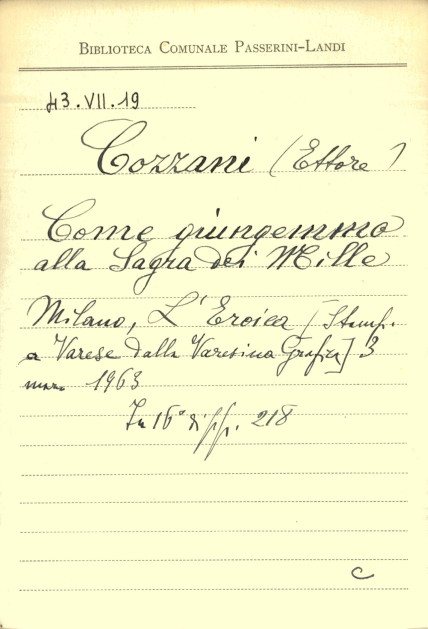 BIBLIOTECA COMUNALE PASSERINI-LANDI
43.VII.19
Cozzani (Ettore)
Come giungemmo
alla Sagra dei Mille
Milano, L'Eroica [Stamp.
a Varese dalla Varesina Grafica] 3
marzo 1963
In 16° di pp. 218
C